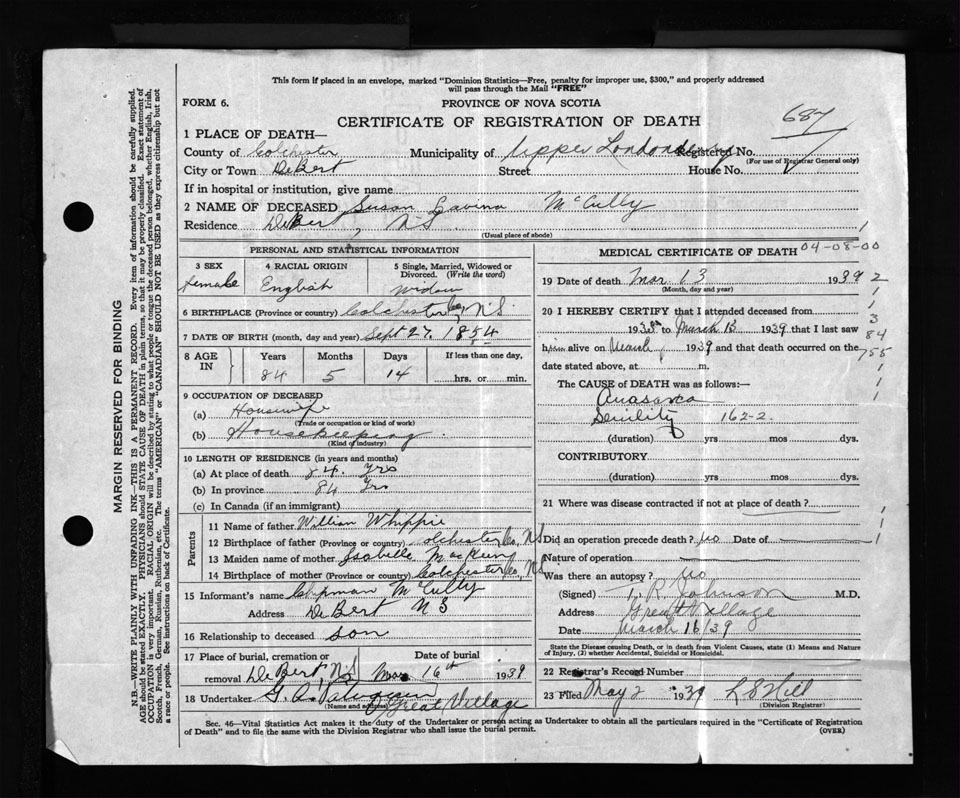 This form if placed in an envelope, marked "Dominion Statistics—Free, penalty for improper use, $300," and properly addressed
will pass through the Mail "FREE"
FORM 6.
PROVINCE OF NOVA SCOTIA
CERTIFICATE OF REGISTRATION OF DEATH
687
1 PLACE OF DEATH—
County of Colchester Municipality of Upper Londonderry Registered No.
(For use of Registrar General only)
City or Town DeBert Street House No.
If in hospital or institution, give name
2 NAME OF DECEASED Susan Lavina McCully
Residence DeBert, NS
(Usual place of abode)
1
PERSONAL AND STATISTICAL INFORMATION
3 SEX 4 RACIAL ORIGIN 5 Single, Married, Widowed or Divorced. (Write the word)
Female English Widow
6 BIRTHPLACE (Province or country) Colchester Co, N.S.
7 DATE OF BIRTH (month, day and year) Sept 27, 1854
8 AGE IN Years Months Days If less than one day,
84 5 14 hrs. or min.
9 OCCUPATION OF DECEASED
(a) Housewife
(Trade or occupation or kind of work)
(b) Housekeeping
(Kind of industry)
10 LENGTH OF RESIDENCE (in years and months)
(a) At place of death 84. Yrs
(b) In province 84 Yrs
(c) In Canada (if an immigrant)
Parents
11 Name of father William Whippie
12 Birthplace of father (Province or country) Colchester Co, N.S.
13 Maiden name of mother Isabelle
14 Birthplace of mother (Province or country) Colchester Co, N.S.
15 Informant's name Chipman McCully
Address DeBert NS
16 Relationship to deceased son
17 Place of burial, cremation or removal DeBert, N.S. Date of burial Mar 16th 1939
18 Undertaker G. A.
(Name and address) Great Village
MEDICAL CERTIFICATE OF DEATH
04-08-00
19 Date of death Mar. 13 1939
(Month, day and year)
20 I HEREBY CERTIFY that I attended deceased from
1938 to March 13 1939 that I last saw
him alive on March, 1939 and that death occurred on the
date stated above, at m.
The CAUSE OF DEATH was as follows:—
Anasarca
Senility 162-2.
(duration) yrs mos dys.
CONTRIBUTORY
(duration) yrs mos dys.
2
1
1
3
84
755
1
1
1
21 Where was disease contracted if not at place of death?
Did an operation precede death? no Date of
Nature of operation
Was there an autopsy? no
(Signed) T. R. Johnson M.D.
Address Great Village
Date March 16/39
State the Disease Causing Death, or in death from Violent Causes, state (1) Means and Nature
of Injury, (2) whether Accidental, Suicidal or Homicidal.
22 Registrar's Record Number
23 Filed May 2 1939 L S Hill
(Division Registrar)
Sec. 46—Vital Statistics Act makes it the duty of the Undertaker or person acting as Undertaker to obtain all the particulars required in the "Certificate of Registration
of Death" and to file the same with the Division Registrar who shall issue the burial permit.
(OVER)
MARGIN RESERVED FOR BINDING
N.B.—WRITE PLAINLY WITH UNFADING INK—THIS IS A PERMANENT RECORD. Every item of information should be carefully supplied.
AGE should be stated EXACTLY. PHYSICIANS should STATE CAUSE OF DEATH in plain terms, so that it may be properly classified. Exact statement of
OCCUPATION is very important. RACIAL ORIGIN will be described by stating to what people or tongue the deceased person belonged, whether English, Irish,
Scotch, French, German, Russian, Ruthenian, etc. The terms "AMERICAN" or "CANADIAN" SHOULD NOT BE USED as they express citizenship but not
a race or people. See instructions on back of Certificate.